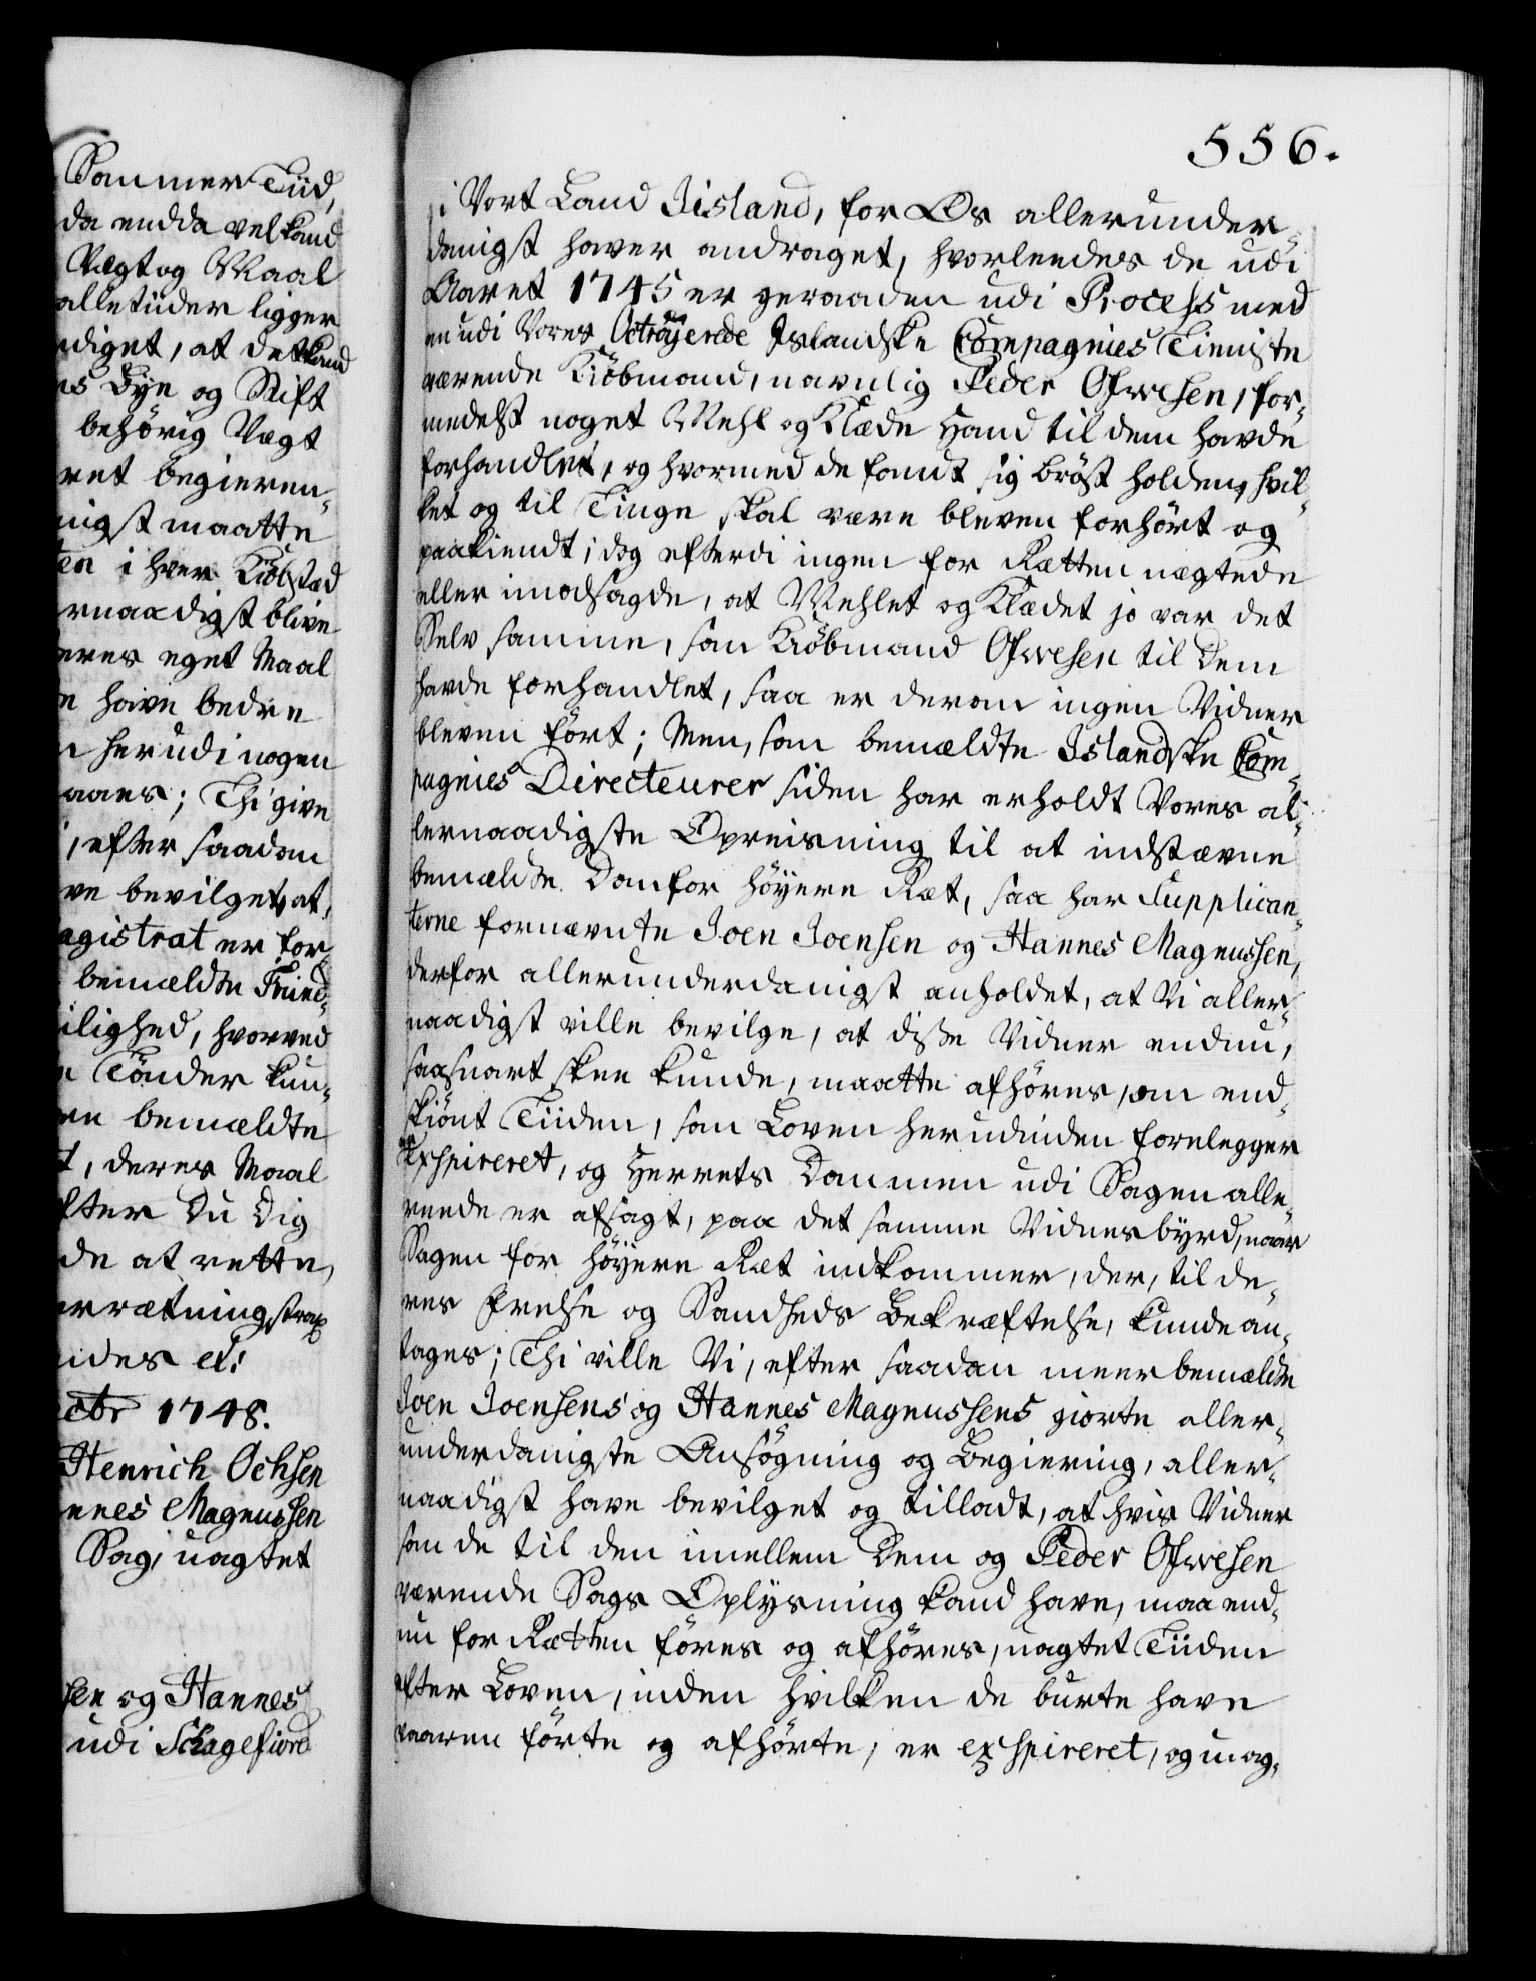 Sommer Tiid,
da endda vel kand
Vægt og Maal
alletiider ligger
diget, at det kand
es Bye og Stift
behörig Vægt
ret begieren-
nigst maatte
ten i hver Kiöbstæd
rnaadigst blive
eres eget Maal
e have bedre
n herudi nogen
aaes; Thi give
i, efter saadan
ve bevilget, at,
agistrat er for-
bemældte
ilighed, hvorved
n Tönder kun-
en bemældte
t, deres Maal
fter Du Dig
de at rette,
rrætning strax
ides etc:
ctbr 1748.
Henrich Ochsen
nnes Magnussen
Sag, uagtet
sen og Hannes
udi Schagefiord
556.
i Vort Land Iisland, for Os allerunder-
danigst haver andraget, hvorleedes de udi
Aaret 1745 er geraaden udi Process med
en udi Vores Octroyerede Islandske Compagnies Tieniste
værende Kiöbmand, navnlig Peder Ofvesen, for-
medelst noget Mehl og Klæde Hand til dem havde
forhandlet, og hvormed de fandt sig bröst holden, hvil-
ket og til Tinge skal være bleven forhört og
paakiendt; dog efterdi ingen for Rætten nægtede
eller imodsagde, at Mehlet og Klædet jo var det
Selv samme, som Kiöbmand Ofvesen til Dem
havde forhandlet, saa er derom ingen Vidner
bleven fört; Men, som bemældte Islandske Com-
pagnies Directeurer siden har erholdt Vores al-
lernaadigste Opreisning til at indstævne
bemældte Dom for höyere Ræt, saa har Supplican-
terne fornævnte Joen Joensen og Hannes Magnussen,
derfor allerunderdanigst anholdet, at Vi aller-
naadigst ville bevilge, at disse Vidner endnu,
saasnart skee kunde, maatte afhöres, om end-
skiönt Tiiden, som Loven herudinden forelegger
er exspireret, og Herrets Dommen udi Sagen alle-
reede er afsagt, paa det samme Vidnesbyrd, naar
Sagen for höyere Ræt indkommer, der, til de-
res Frelse og Sandheds Bekræftelse, kunde an-
tages; Thi ville Vi, efter saadan meerbemældte
Joen Joensens og Hannes Magnussens giorte aller-
underdanigste Ansögning og Begiering, aller-
naadigst have bevilget og tilladt, at hvis Vidner
som de til den imellem Dem og Peder Ofvesen
værende Sags Oplysning kand have, maa end-
nu for Rætten föres og afhöres, uagtet Tiiden
efter Loven, inden hvilken de burte have
vaaren förte og afhörte, er exspireret, og uag-